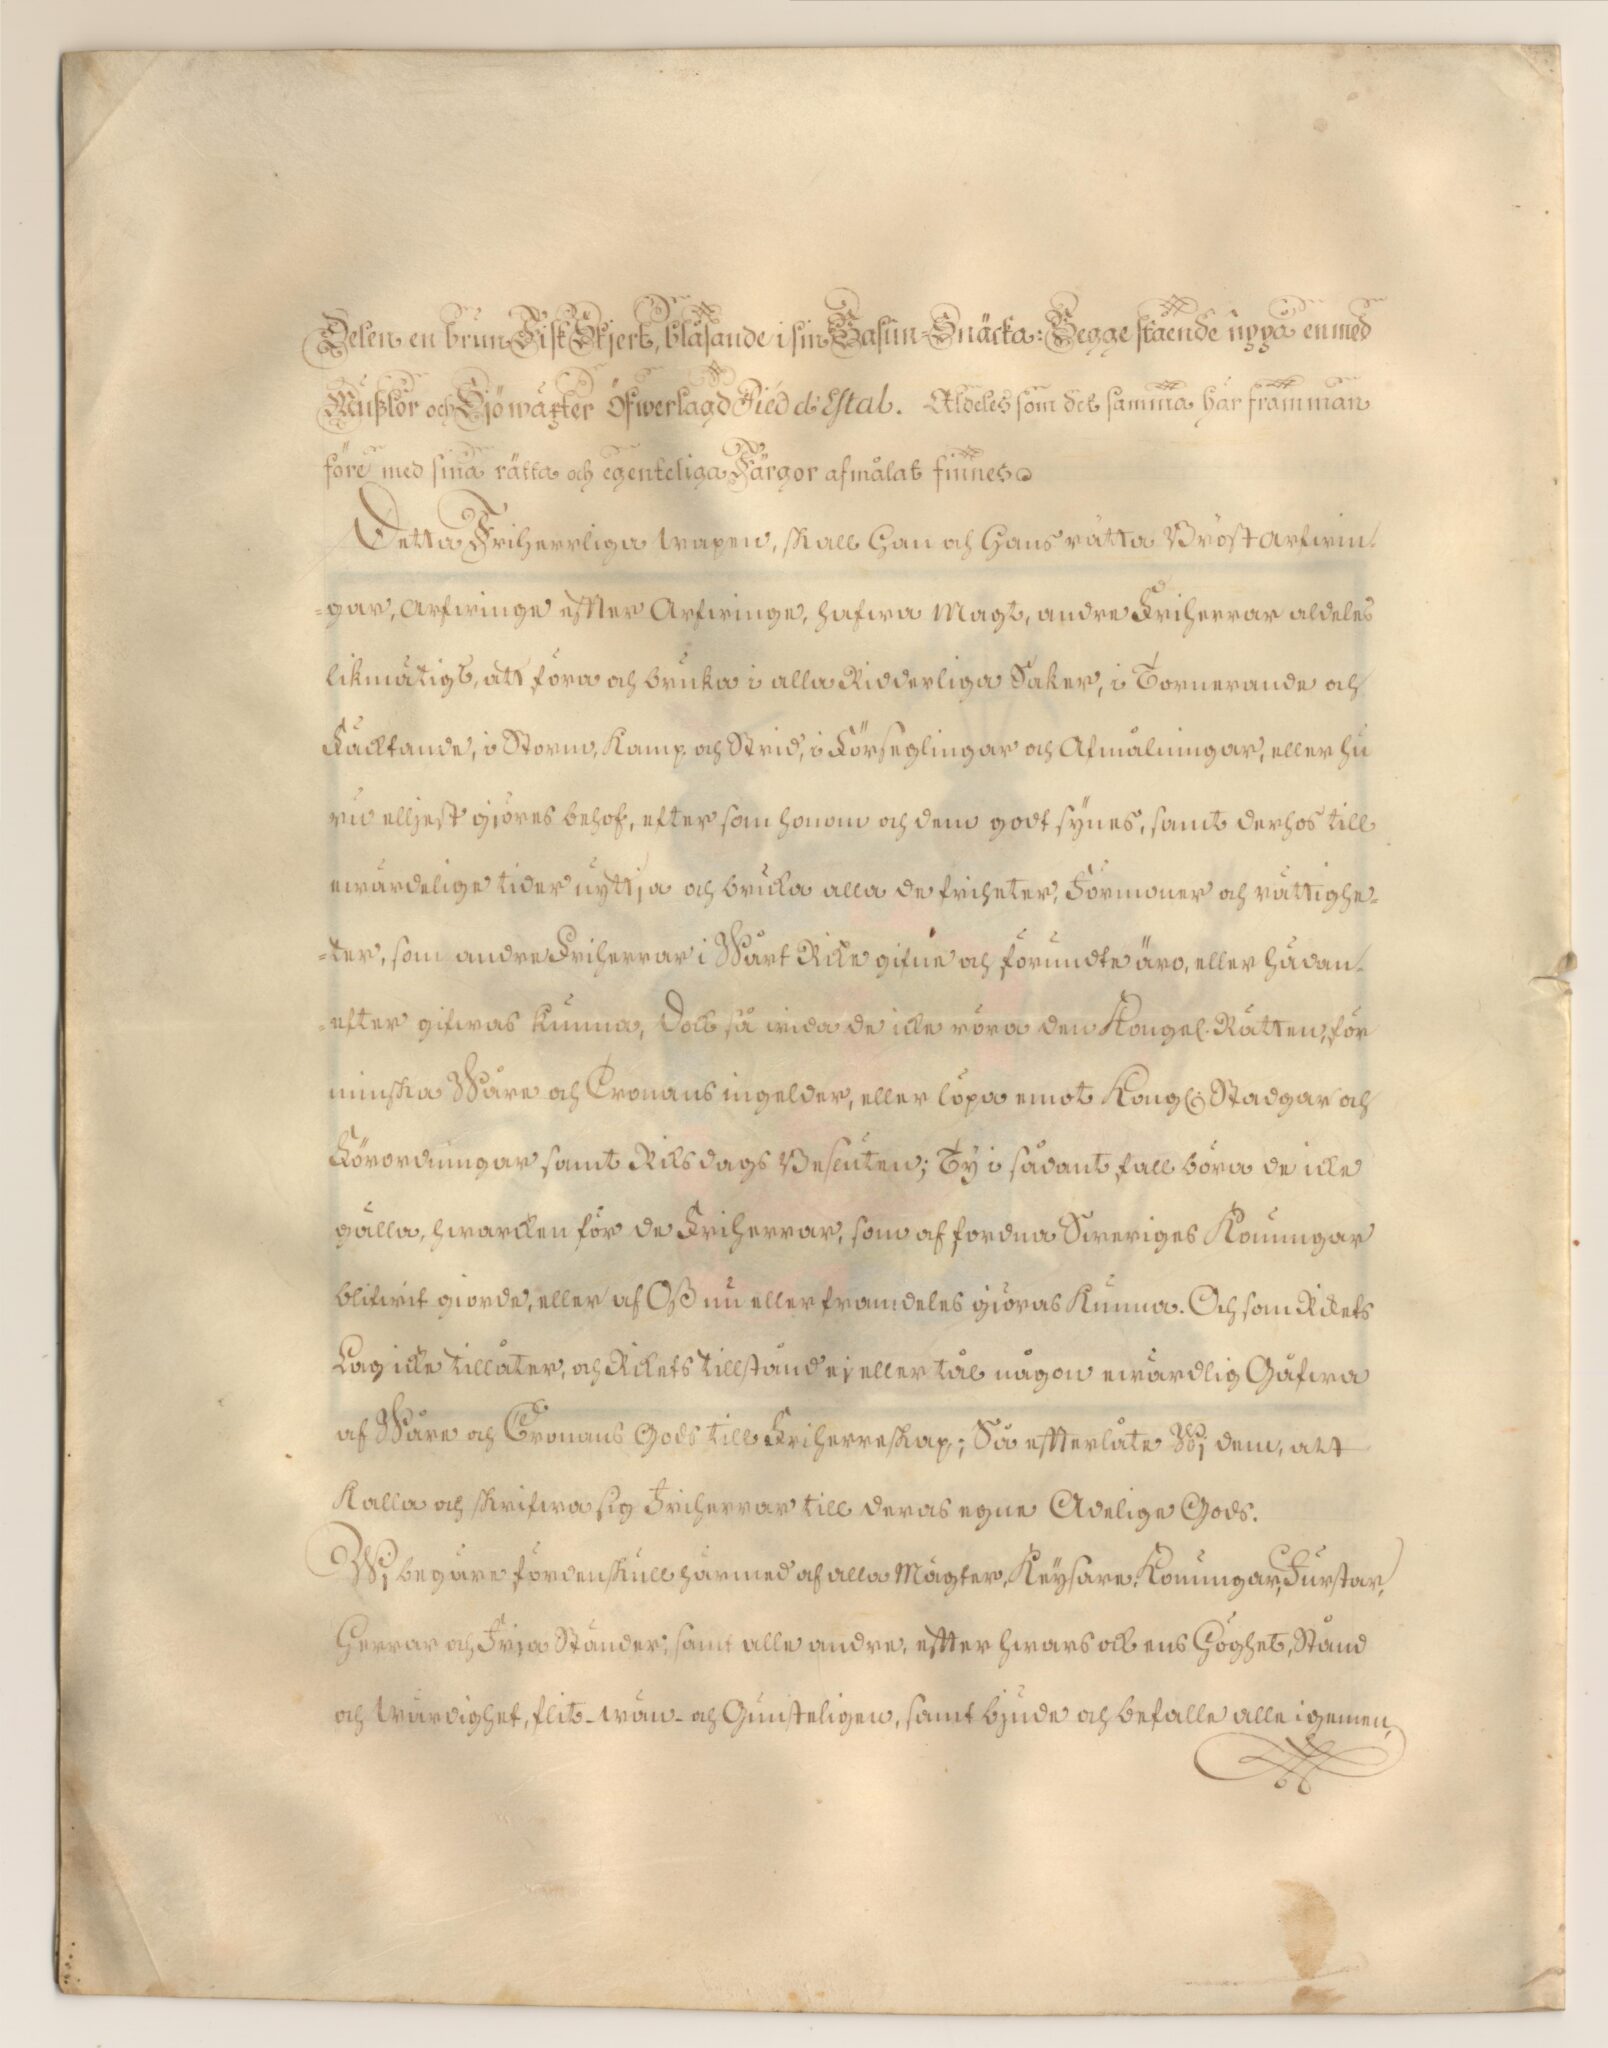 Delen en brun Fisk Skjert, blåsande i sin Basun-Snäcka: Begge stående uppå en med
Mußlor och Sjöwäxter Öfwerlagd Piéd d'Estal. Aldeles som det samma här framman
före med sina rätta och egenteliga Färgor afmålat finnes.
Detta Friherrliga wapen, skall Han och Hans rätta Bröst arfwin-
=gar, Arfwinge effter Arfwinge, hafwa Magt, andre Friherrar aldeles
likmätigt, att föra och bruka i alla Ridderliga Saker, i Tornerande och
Fäcktande, i Storm, Kamp och Strid, i Förseglingar och Afmålningar, eller hu
rud elljest giöres behof, efter som honom och dem godt synes, samt derhos till
ewärdelige tider nyttja och brucka alla de friheter, Förmoner och rättighe-
=ter, som andre Friherrar i Wårt Rike gifne och förundte äro, eller hädan-
=efter gifwas kunna, Dock så wida de icke röra den Kongel. Rätten, för
minska Wåre och Cronans ingelder, eller löpa emot Kongl. Stadgar och
Förordningar samt Riksdags Besluten; Ty i sådant fall böra de icke
gälla, hwarcken för de Friherrar, som af fordna Sweriges Konungar
blifwit giorde, eller af Oß nu eller framdeles giöras kunna. Och som Rickets
Lag icke tillåter, och Rickets tillstånd ej eller tål någon ewärdlig Gåfwa
af Wåre och Cronans Gods till Friherreskap; Så effterlåte Wj dem, att
Kalla och skrifwa sig Friherrar till deras egne Adelige Gods.
Wj begäre fördenskull härmed af alla Mägter, Keysare, Konungar, Furstar,
Herrar och Frja Ständer, samt alle andre, effter hwars och ens Höghet, Stånd
och Wärdighet, flit- wän- och Gunsteligen, samt bjude och befalle alle i gemen,